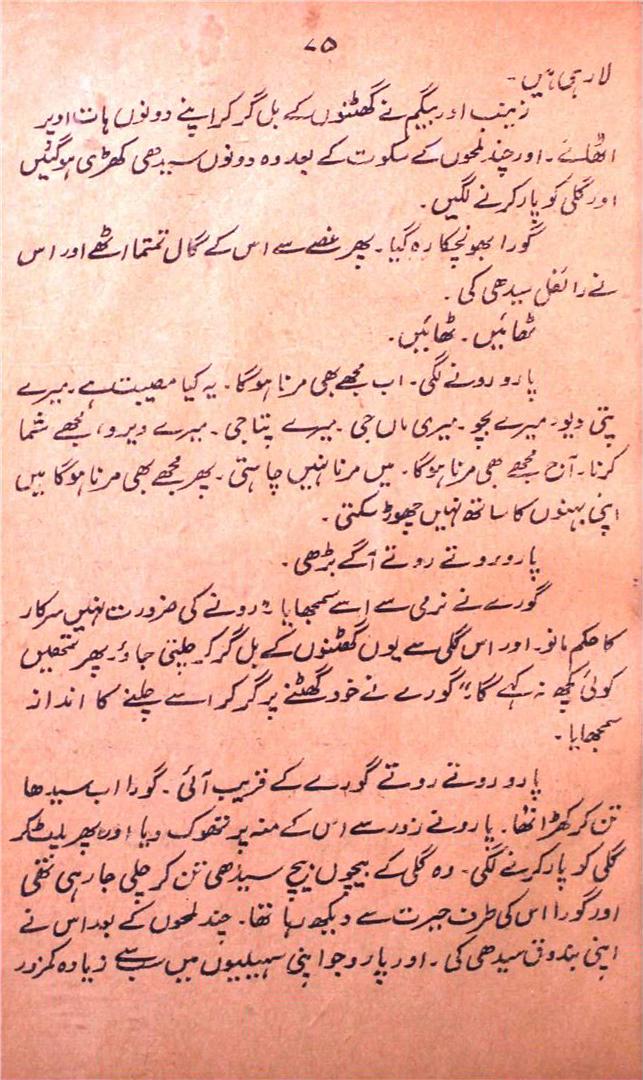 ۷۵
لا رہی ہیں۔
زینب اور بیگم نے گھٹنوں کے بل گر کر اپنے دونوں ہات اوپر
اٹھالئے۔ اور چند لمحوں کے سکوت کے بعد وہ دونوں سیدھی کھڑی ہو گئیں
اور گلی کو پار کرنے لگیں۔
گورا بھونچکا رہ گیا۔ پھر غصے سے اس کے گال تمتما اٹھے اور اس
نے رائفل سیدھی کی۔
ٹھائیں۔ ٹھائیں۔
پارو رونے لگی۔ اب مجھے بھی مرنا ہوگا۔ یہ کیا مصیبت ہے۔ میرے
پتی دیو۔ میرے بچو۔ میری ماں جی۔ میرے پتا جی۔ میرے ویرو، مجھے شما
کرنا۔ آج مجھے بھی مرنا ہوگا۔ میں مرنا نہیں چاہتی۔ پھر مجھے بھی مرنا ہوگا میں
اپنی بہنوں کا ساتھ نہیں چھوڑ سکتی۔
پارو روتے روتے آگے بڑھی۔
گورے نے نرمی سے اسے سمجھایا "رونے کی ضرورت نہیں سرکار
کا حکم مانو۔ اور اس گلی سے یوں گھٹنوں کے بل گر کر چلتی جاؤ۔ پھر تمھیں
کوئی کچھ نہ کہے گا۔" گورے نے خود گھٹنے پر گر کر اسے چلنے کا انداز
سمجھایا۔
پارو روتے روتے گورے کے قریب آئی۔ گورا اب سیدھا
تن کر کھڑا تھا۔ پارو نے زور سے اس کے منہ پر تھوک دیا اور پھر پلٹ کر
گلی کو پار کرنے لگی۔ وہ گلی کے بیچوں بیچ سیدھی تن کر چلی جا رہی تھی
اور گورا اس کی طرف حیرت سے دیکھ رہا تھا۔ چند لمحوں کے بعد اس نے
اپنی بندوق سیدھی کی۔ اور پارو جو اپنی سہیلیوں میں سب سے زیادہ کمزور